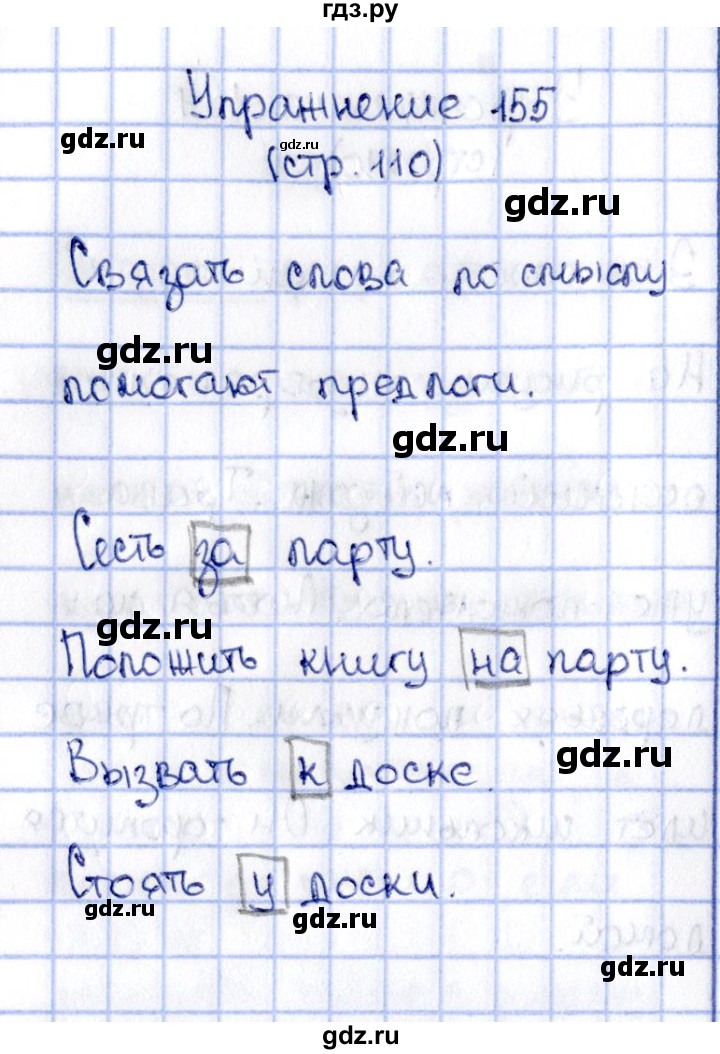 гдз.ру
Упражнение 155
gdz.ru
gdz.ru
(стр. 110)
gdz.ru
Связать слова по смыслу
gdz.ru
помогают предлоги.
gdz.ru
Сесть за парту.
gdz.ru
Положить книгу на парту.
gdz.ru
Вызвать к доске.
Стоять у доски.
gdz.ru
gdz.ru
gdz.ru
гдз.ру